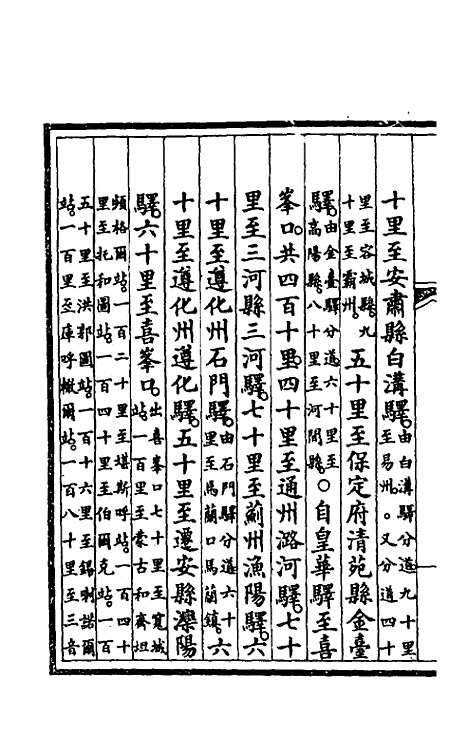 十里至安肅縣白溝驛。由白溝驛分道九十里
至易州。又分道四十
里至容城縣。九
十里至霸州。五十里至保定府清苑縣金臺
驛。由金臺驛分道六十里至
高陽縣。八十里至河間縣。○自皇華驛至喜
峯口。共四百十里。四十里至通州潞河驛。七十
里至三河縣三河驛。七十里至薊州漁陽驛。六
十里至遵化州石門驛。由石門驛分道六十
里至馬蘭口馬蘭鎮。六
十里至遵化州遵化驛。五十里至遷安縣灤陽
驛。六十里至喜峯口。出喜峯口七十里至寬城
站。一百里至蒙古和齊坦
頻格爾站。一百二十里至堪斯呼站。一百四十
里至托和圖站。一百四十里至伯爾克站。一百
五十里至洪郭圖站。一百十六里至錫喇諾爾
站。一百里至庫呼轍爾站。一百八十里至三音